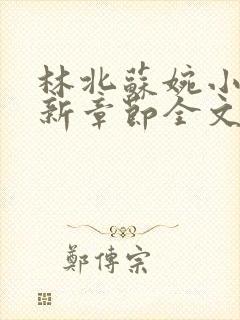 林北蘇婉小
新章節全文
鄭傳宗